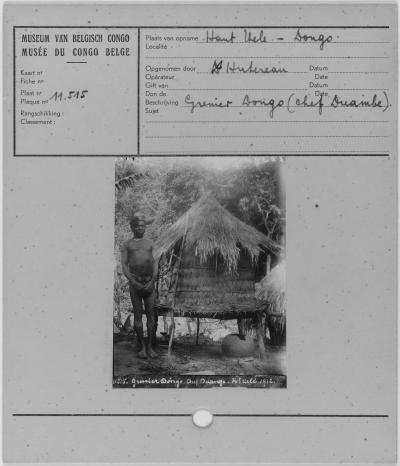 MUSEUM VAN BELGISCH CONGO
MUSÉE DU CONGO BELGE
Kaart nr
Fiche no
Plaat nr
Plaque no 11.515
Rangschikking :
Classement :
Plaats van opname Haut Uele - Dongo.
Localité
Opgenomen door Dr Hutereau Datum
Opérateur Date
Gift van Datum
Don de Date
Beschrijving Grenier Dongo (chef Duambe).
Sujet
Grenier Dongo. Uele 1912.